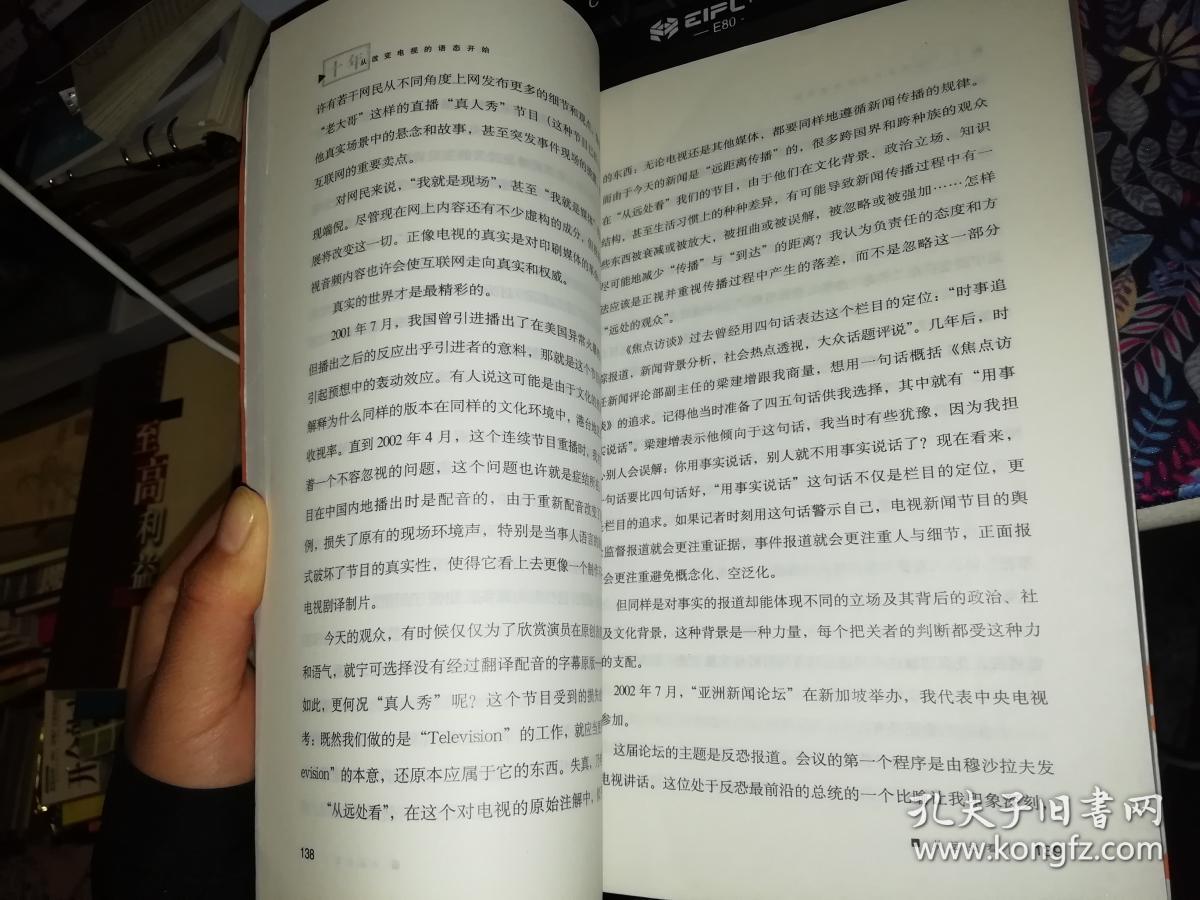 十年
从改变电视的语态开始
许有若干网民从不同角度上网发布更多的细节和观点
“老大哥”这样的直播“真人秀”节目（这种节目已
他真实场景中的悬念和故事，甚至突发事件现场的
互联网的重要卖点。
对网民来说，“我就是现场”，甚至“我就是媒体”
现端倪。尽管现在网上内容还有不少虚构的成分，但
展将改变这一切。正像电视的真实是对印刷媒体的革命
视音频内容也许会使互联网走向真实和权威。
真实的世界才是最精彩的。
2001 年 7 月，我国曾引进播出了在美国异常火爆
但播出之后的反应出乎引进者的意料，那就是这个节目
引起预想中的轰动效应。有人说这可能是由于文化的
解释为什么同样的版本在同样的文化环境中，港台地
收视率。直到 2002 年 4 月，这个连续节目重播时，我
着一个不容忽视的问题，这个问题也许就是症结所在
目在中国内地播出时是配音的，由于重新配音改变了
例，损失了原有的现场环境声，特别是当事人语言的
式破坏了节目的真实性，使得它看上去更像一个制作
电视剧译制片。
今天的观众，有时候仅仅为了欣赏演员在原创
和语气，就宁可选择没有经过翻译配音的字幕原版—
如此，更何况“真人秀”呢？这个节目受到的损失
考：既然我们做的是“Television”的工作，就应当
evision”的本意，还原本应属于它的东西。失真，乃
“从远处看”，在这个对电视的原始注解中，
138
的东西：无论电视还是其他媒体，都要同样地遵循新闻传播的规律。
而由于今天的新闻是“远距离传播”的，很多跨国界和跨种族的观众
在“从远处看”我们的节目，由于他们在文化背景、政治立场、知识
结构，甚至生活习惯上的种种差异，有可能导致新闻传播过程中有一
些东西被衰减或被放大，被扭曲或被误解，被忽略或被强加……怎样
尽可能地减少“传播”与“到达”的距离？我认为负责任的态度和方
法应该是正视并重视传播过程中产生的落差，而不是忽略这一部分
“远处的观众”。
《焦点访谈》过去曾经用四句话表达这个栏目的定位：“时事追
踪报道，新闻背景分析，社会热点透视，大众话题评说”。几年后，时
任新闻评论部副主任的梁建增跟我商量，想用一句话概括《焦点访
谈》的追求。记得他当时准备了四五句话供我选择，其中就有“用事
实说话”。梁建增表示他倾向于这句话，我当时有些犹豫，因为我担
心别人会误解：你用事实说话，别人就不用事实说话了？现在看来，
一句话要比四句话好，“用事实说话”这句话不仅是栏目的定位，更
栏目的追求。如果记者时刻用这句话警示自己，电视新闻节目的舆
监督报道就会更注重证据，事件报道就会更注重人与细节，正面报
会更注重避免概念化、空泛化。
但同样是对事实的报道却能体现不同的立场及其背后的政治、社
及文化背景，这种背景是一种力量，每个把关者的判断都受这种力
的支配。
2002 年 7 月，“亚洲新闻论坛”在新加坡举办，我代表中央电视
参加。
这届论坛的主题是反恐报道。会议的第一个程序是由穆沙拉夫发
电视讲话。这位处于反恐最前沿的总统的一个比喻让我印象深刻，
139
至高利益
EIFL
E80
孔夫子旧书网
www.kongfz.com